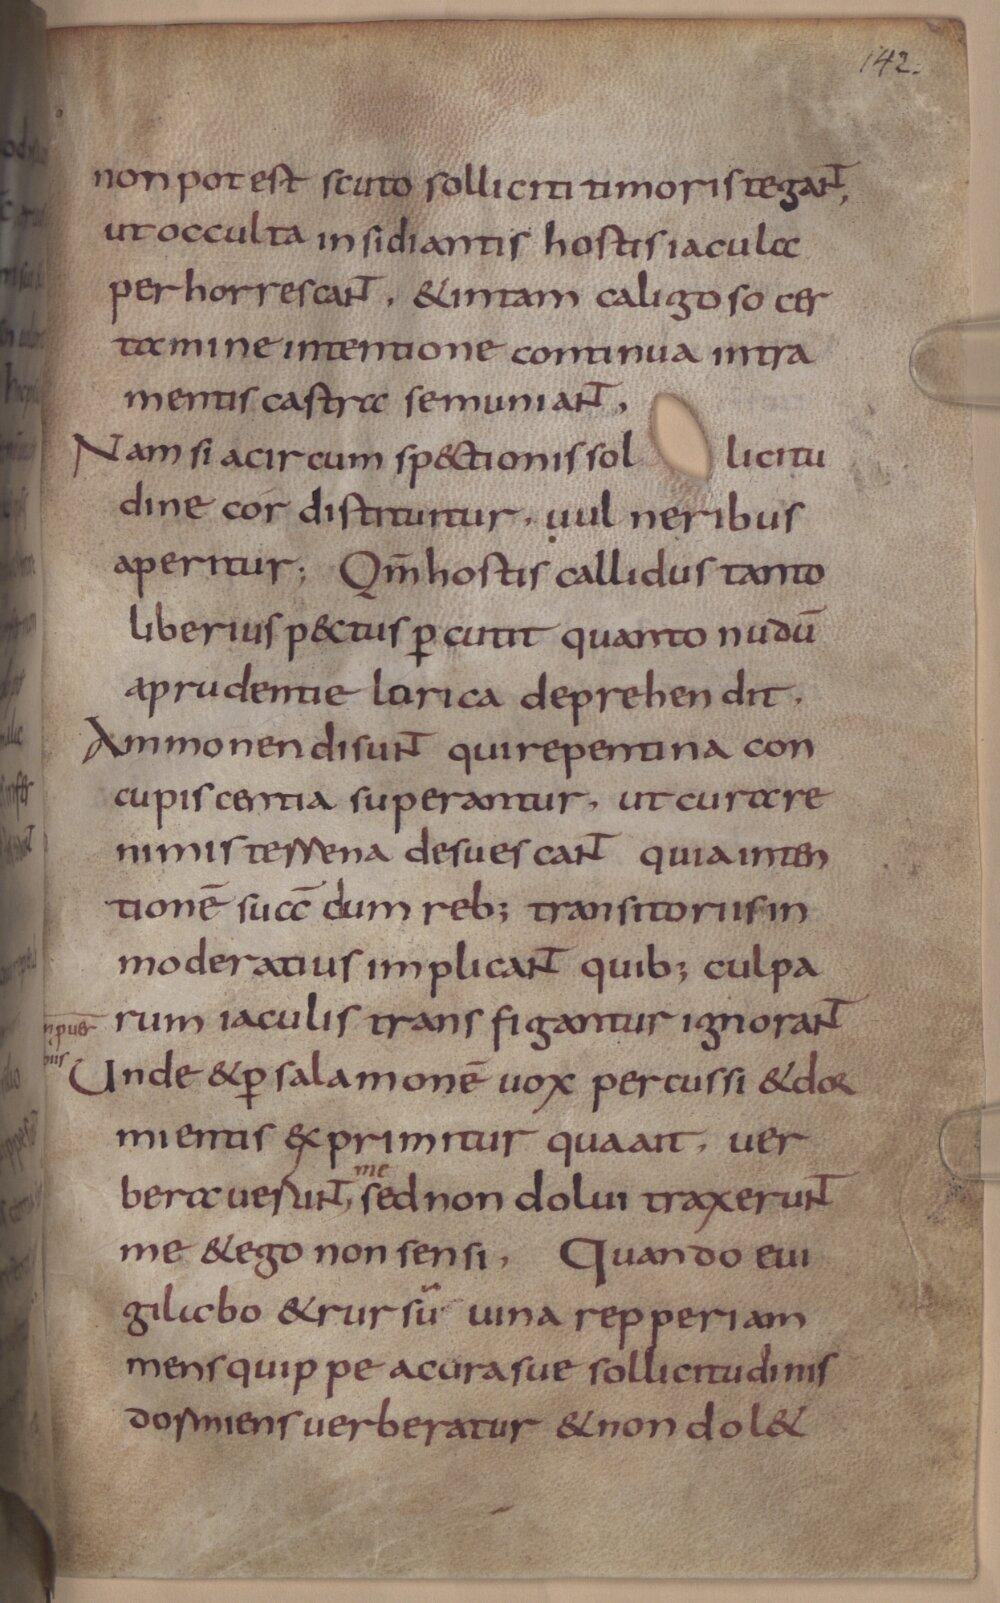 142.
non potest scuto solliciti timoris tegant,
ut occulta insidiantis hostis iacula
perhorrescant, & in tam caligoso cer
tamine intentione continua intra
mentis castra se muniant,
Nam si a circumspectionis sollicitu
dine cor distituitur, uulneribus
aperitur; Qm̄ hostis callidus tanto
liberius p&ctus ꝑcutit quanto nudū
a prudentie lorica deprehendit,
Ammonendi sunt qui repentina con
cupiscentia superantur, ut curare
nimis terrena desuescant quia inten
tionē suā dum reb; transitoriis in
moderatius implicant quib; culpa
rum iaculis transfigantur ignorant
Unde & ꝑ salamonē uox percussi & dor
mientis exprimitur qua ait, uer
me
berauerunt, sed non dolui traxerunt
me & ego non sensi, Quando eui
gilabo & rursū uina repperiam
mens quippe a cura sue sollicitudinis
dormiens uerberatur & non dol&